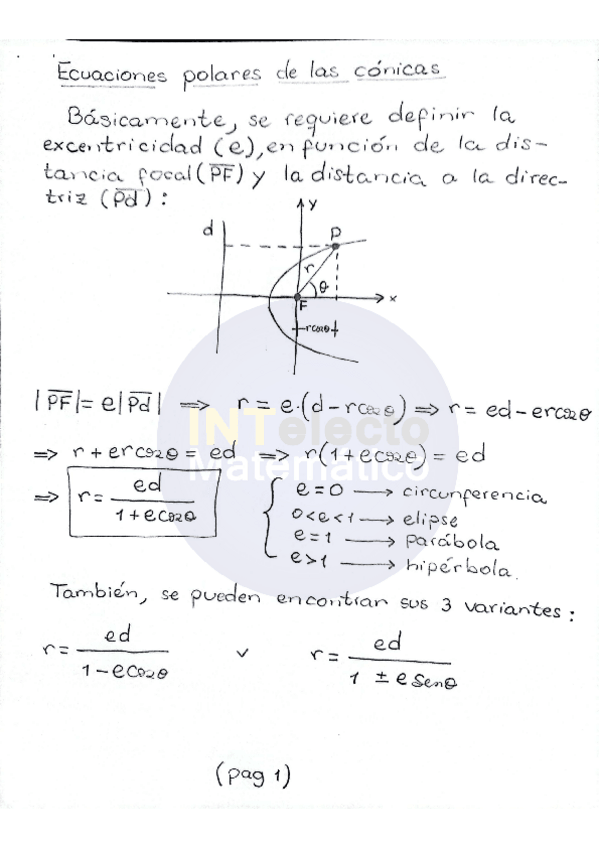 Ecuaciones polares de las cónicas
Básicamente, se requiere definir la
excentricidad (e), en función de la dis-
tancia focal (P̅F̅) y la distancia a la direc-
triz (P̅d̅):
y
d
P
r
θ
F
x
rcosθ
|P̅F̅| = e|P̅d̅| ⇒ r = e·(d - rcosθ) ⇒ r = ed - ercosθ
⇒ r + ercosθ = ed ⇒ r(1 + ecosθ) = ed
⇒ r = ed / 1 + ecosθ
e = 0 → circunferencia
0 < e < 1 → elipse
e = 1 → parábola
e > 1 → hipérbola.
También, se pueden encontrar sus 3 variantes:
r = ed / 1 - ecosθ v r = ed / 1 ± e senθ
(pag 1)
INTelecto
Matemático